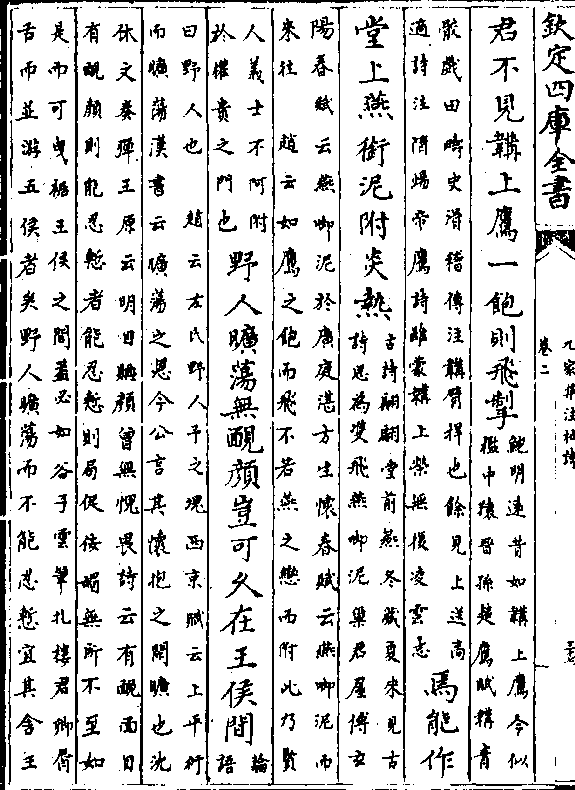 欽定四庫全書
九家集注杜詩
卷二
君不見鞲上鷹一飽則飛掣
鮑明遠昔如鞲上鷹今似
檻中猿晉孫楚鷹賦鞲青
骹戲田疇史滑稽傳注鞲臂捍也餘見上送高
適詩注隋煬帝鷹詩雖蒙鞲上榮無復凌雲志
焉能作
堂上燕銜泥附炎熱
古詩翩翩堂前燕冬藏夏來見古
詩思為雙飛燕啣泥巢君屋傅玄
陽春賦云燕啣泥於廣庭湛方生懷春賦云燕啣泥而
來往 趙云如鷹之飽而飛不若燕之戀而附此乃賢
人義士不阿附
於權貴之門也
野人曠蕩無靦顔豈可久在王侯間
論
語
曰野人也 趙云左氏野人予之塊西京賦云上平衍
而曠蕩漢書云曠蕩之恩今公言其懷抱之閒曠也沈
休文奏彈王原云明目靦顔曾無愧畏詩云有靦面目
有靦顔則能忍慙者能忍慙則局促佞媚無所不至如
是而可曳裾王侯之間蓋必如谷子雲筆札樓君卿脣
舌而並游五侯者矣野人曠蕩而不能忍慙宜其含王